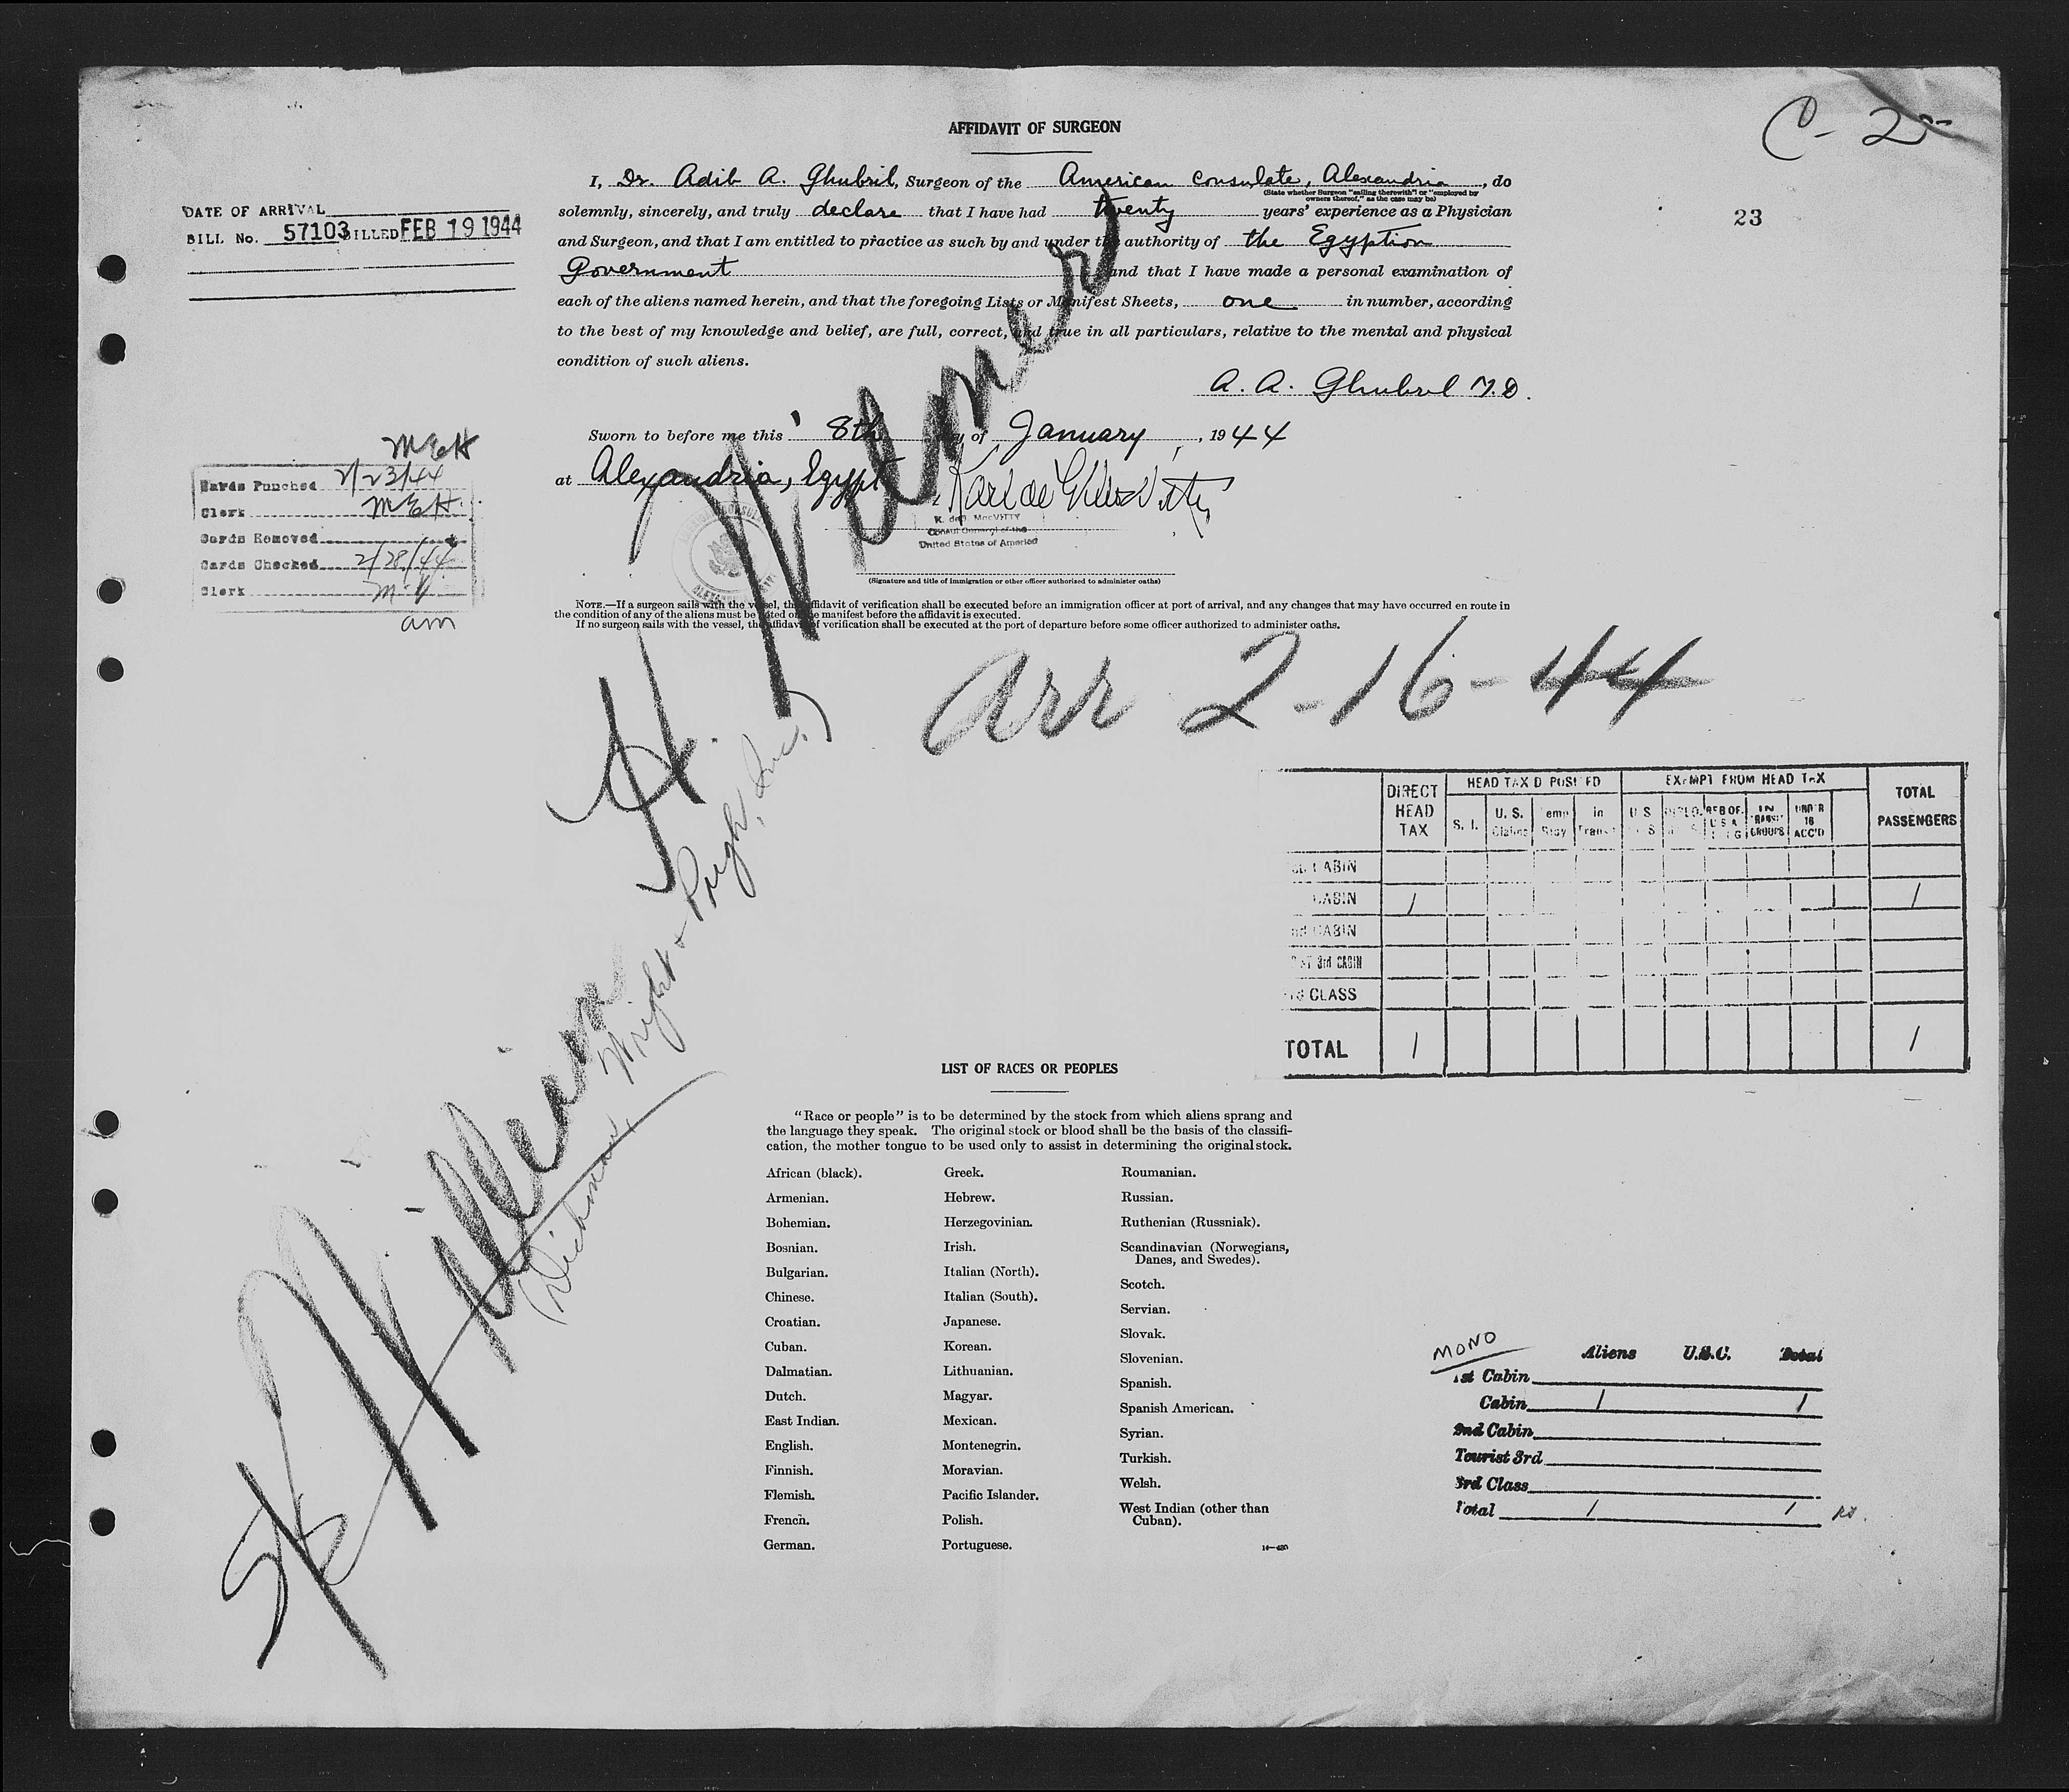 C-2
AFFIDAVIT OF SURGEON
I, Dr. Adib A. Ghubril, Surgeon of the American Consulate, Alexandria, do
(State whether Surgeon "sailing therewith" or "employed by
owners thereof," as the case may be)
solemnly, sincerely, and truly declare that I have had twenty years' experience as a Physician
and Surgeon, and that I am entitled to practice as such by and under the authority of the Egyption
Government and that I have made a personal examination of
each of the aliens named herein, and that the foregoing Lists or Manifest Sheets, one in number, according
to the best of my knowledge and belief, are full, correct, and true in all particulars, relative to the mental and physical
condition of such aliens.
A. A. Ghubril M.D.
Sworn to before me this 8th day of January, 1944
at Alexandria, Egypt
K. deG. MacVITTY
Consul General of the
United States of America
(Signature and title of immigration or other officer authorized to administer oaths)
NOTE.—If a surgeon sails with the vessel, the affidavit of verification shall be executed before an immigration officer at port of arrival, and any changes that may have occurred en route in
the condition of any of the aliens must be noted on the manifest before the affidavit is executed.
If no surgeon sails with the vessel, the affidavit of verification shall be executed at the port of departure before some officer authorized to administer oaths.
DATE OF ARRIVAL
BILL No. 57103 BILLED FEB 19 1944
23
MEH
Cards Punched 2/23/44
Clerk MEH.
Cards Removed
Cards Checked 2/28/44
Clerk
am
arr 2-16-44
DIRECT HEAD TAX
HEAD TAX DEPOSITED
EXEMPT FROM HEAD TAX
TOTAL PASSENGERS
S. I.
U. S.
in Transit
IN TRANSIT GROUPS
UNDER 16 ACC'D
CABIN
CABIN 1 1
CABIN
3rd CABIN
CLASS
TOTAL 1 1
LIST OF RACES OR PEOPLES
"Race or people" is to be determined by the stock from which aliens sprang and
the language they speak. The original stock or blood shall be the basis of the classifi-
cation, the mother tongue to be used only to assist in determining the original stock.
African (black).
Armenian.
Bohemian.
Bosnian.
Bulgarian.
Chinese.
Croatian.
Cuban.
Dalmatian.
Dutch.
East Indian.
English.
Finnish.
Flemish.
French.
German.
Greek.
Hebrew.
Herzegovinian.
Irish.
Italian (North).
Italian (South).
Japanese.
Korean.
Lithuanian.
Magyar.
Mexican.
Montenegrin.
Moravian.
Pacific Islander.
Polish.
Portuguese.
Roumanian.
Russian.
Ruthenian (Russniak).
Scandinavian (Norwegians,
Danes, and Swedes).
Scotch.
Servian.
Slovak.
Slovenian.
Spanish.
Spanish American.
Syrian.
Turkish.
Welsh.
West Indian (other than
Cuban).
MONO
Aliens U.S.C. Total
1st Cabin
Cabin 1 1
2nd Cabin
Tourist 3rd
3rd Class
Total 1 1